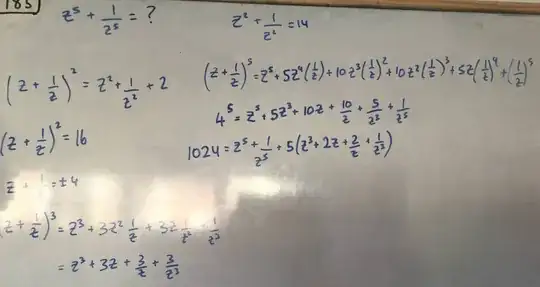 185
z⁵ + 1/z⁵ = ?
z² + 1/z² = 14
(z + 1/z)² = z² + 1/z² + 2
(z + 1/z)² = 16
z + 1/z = ±4
(z + 1/z)³ = z³ + 3z² 1/z + 3z 1/z² + 1/z³
= z³ + 3z + 3/z + 3/z³
(z + 1/z)⁵ = z⁵ + 5z⁴(1/z) + 10z³(1/z)² + 10z²(1/z)³ + 5z(1/z)⁴ + (1/z)⁵
4⁵ = z⁵ + 5z³ + 10z + 10/z + 5/z³ + 1/z⁵
1024 = z⁵ + 1/z⁵ + 5(z³ + 2z + 2/z + 1/z³)